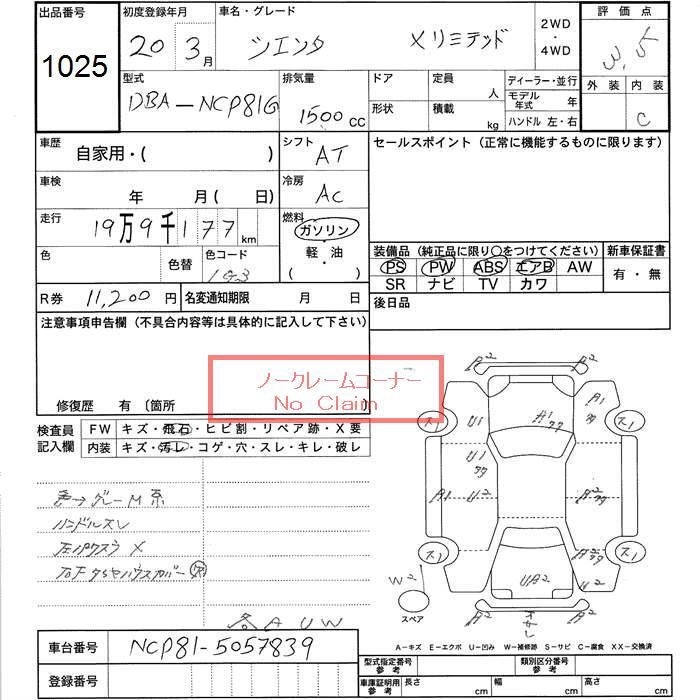 出品番号 初度登録年月 車名・グレード 2WD・4WD 評価点
1025 20 3月 シエンタ Xリミテッド 3.5
型式 排気量 ドア 定員 人 ディーラー・並行 外装 内装
DBA-NCP81G 1500 CC 形状 積載 kg モデル年式 年 C
ハンドル 左・右
車歴 自家用・( ) シフト AT セールスポイント (正常に機能するものに限ります)
車検 年 月( 日) 冷房 AC
走行 19万9千177km 燃料 ガソリン・軽・油・( )
色 色替 色コード 1G3 装備品 (純正品に限り○をつけてください) 新車保証書
PS PW ABS エアB AW 有・無
SR ナビ TV カワ
R券 11,200円 名変通知期限 月 日 後日品
注意事項申告欄 (不具合内容等は具体的に記入して下さい)
ノークレームコーナー
No Claim
修復歴 有 〔箇所
検査員記入欄 FW キズ・飛石・ヒビ割・リペア跡・X要
内装 キズ・汚レ・コゲ・穴・スレ・キレ・破レ
A2 A2
A1 スリ U1 A1 スリ
U1
A1 U2 A2
スリ スリ
W2 UA2
スペア
ハンドルスレ
A U W
A-キズ E-エクボ U-凹み W-補修跡 S-サビ C-腐食 XX-交換済
車台番号 NCP81-5057839
登録番号
型式指定番号参考 類別区分番号参考
車庫証明用参考 長さ cm 幅 cm 高さ cm